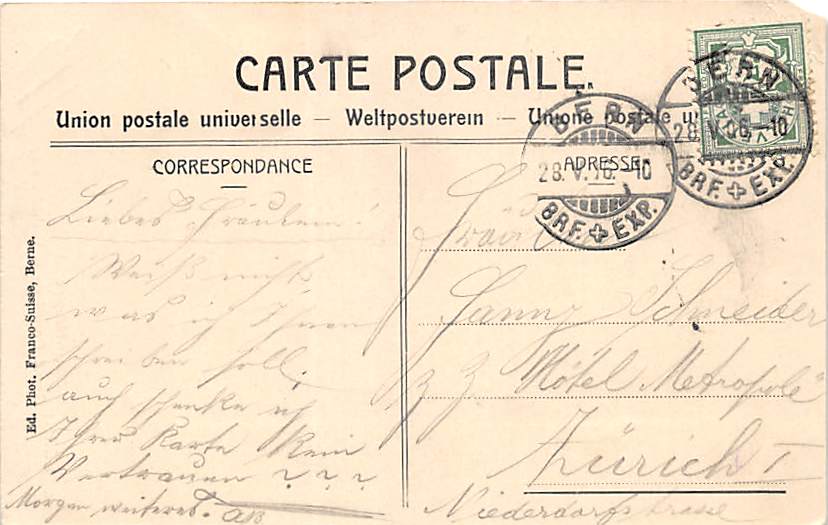 CARTE POSTALE
Union postale universelle — Weltpostverein — Unione postale u
CORRESPONDANCE
ADRESSE
BERN
28.V.06.-10
BRF. EXP.
BERN
28.V.06.-10
BRF. EXP.
Ed. Phot. Franco-Suisse, Berne.
Liebes Fräulein!
Weiß nicht
was ich Ihnen
schreiben soll.
auch schenke ich
Ihrer Karte kein
Vertrauen ? ? ?
Morgen weiteres.
Fräulein
Schneider
z. Z. Hôtel Metropole
Zürich I
Niederdorfstrasse